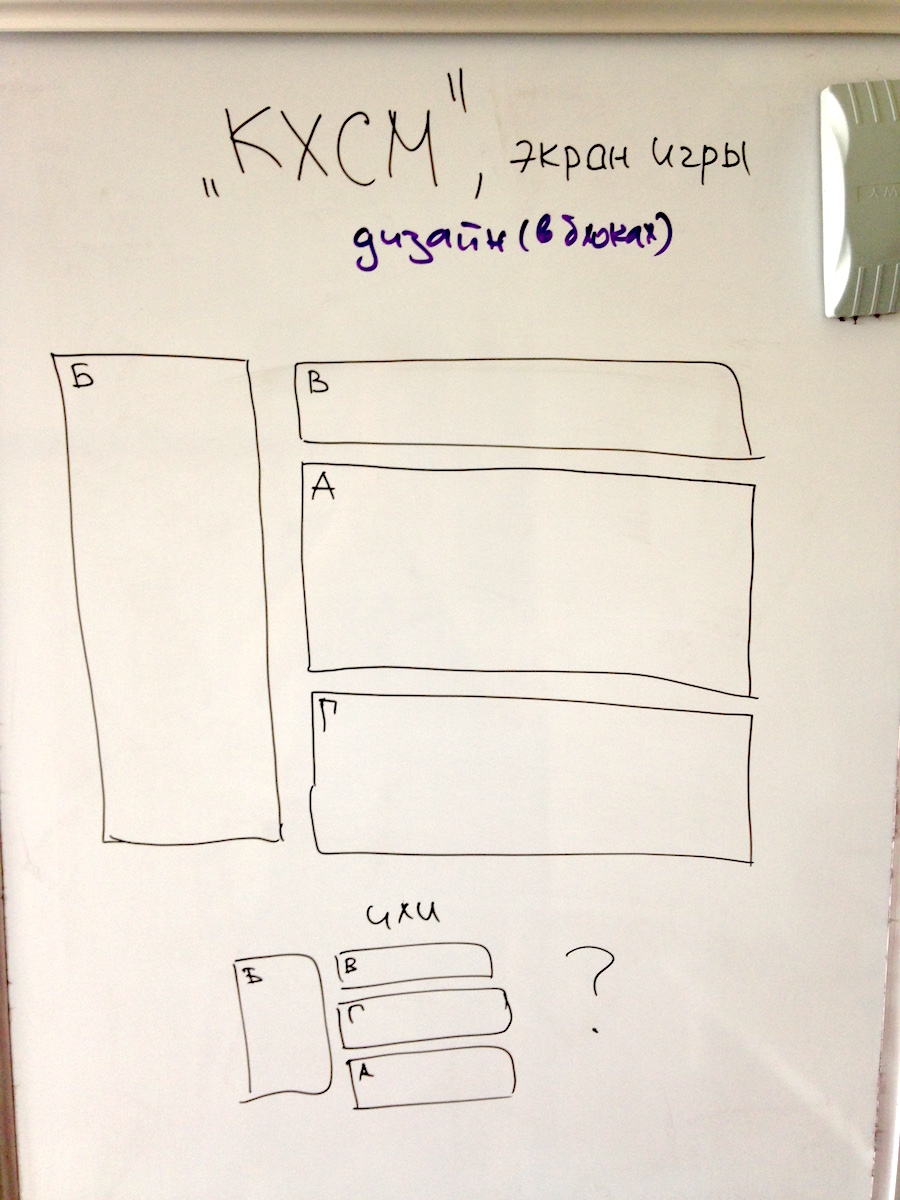 „КХСМ", экран игры
дизайн (в блоках)
Б
В
А
Г
или
Б
В
Г
А
?